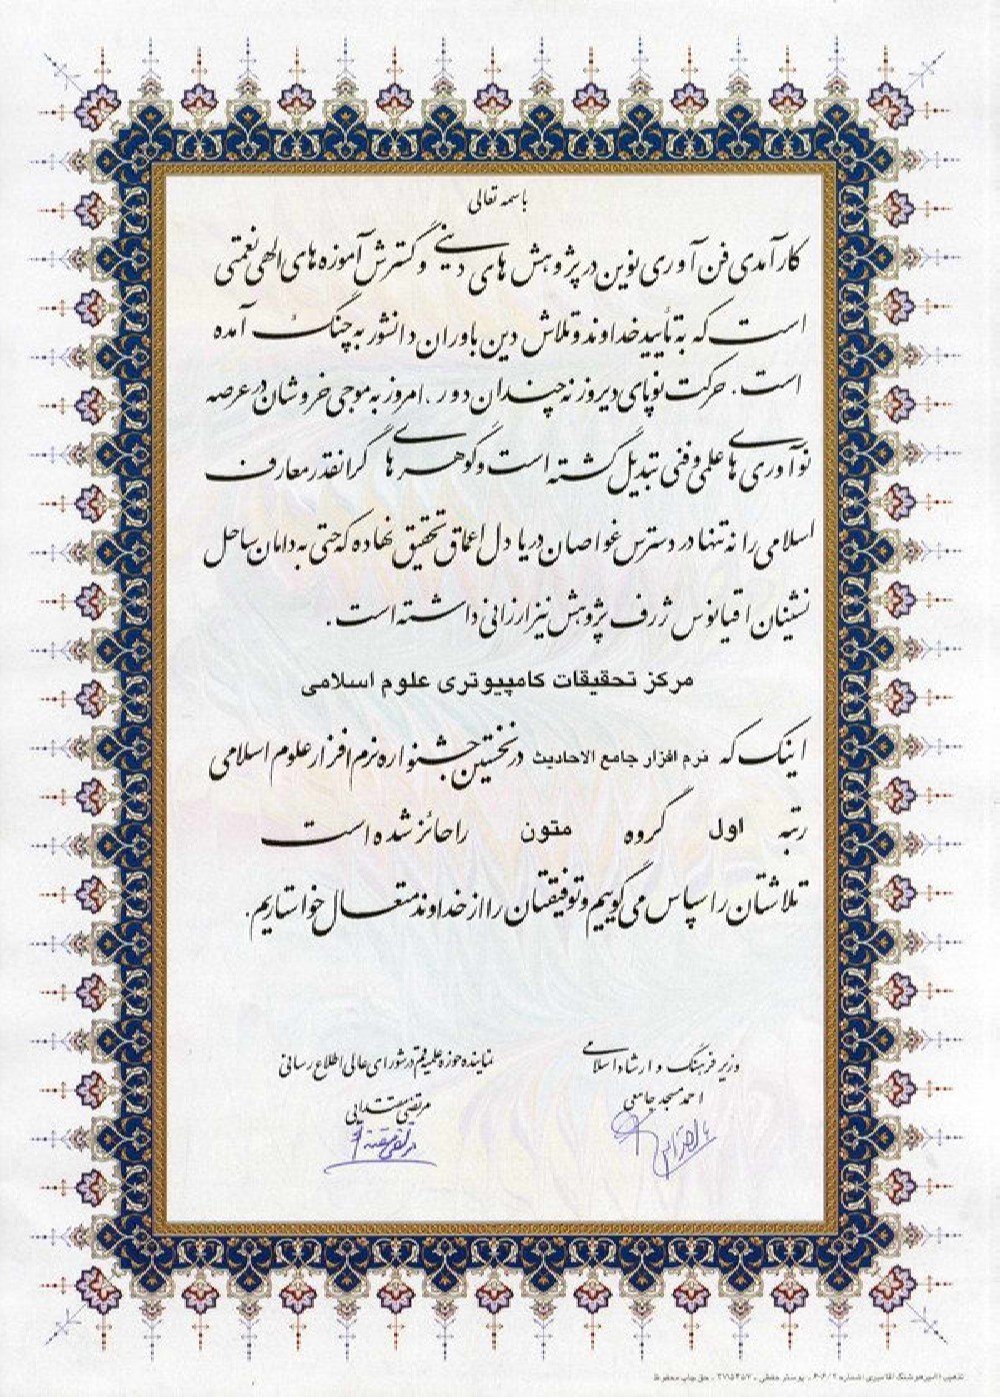 باسمه تعالی
کارآمدی فن آوری نوین در پژوهش های دینی و گسترش آموزه های الهی نعمتی
است که به تأیید خداوند و تلاش دین باوران دانشور به چنگ آمده
است. حرکت نوپای دیروز نه چندان دور، امروز به موجی خروشان در عرصه
نوآوری های علمی و فنی تبدیل گشته است و گوهرهای گرانقدر معارف
اسلامی را نه تنها در دسترس غواصان دریا دل اعماق تحقیق نهاده که حتی به دامان ساحل
نشینان اقیانوس ژرف پژوهش نیز ارزانی داشته است.
مرکز تحقیقات کامپیوتری علوم اسلامی
اینک که نرم افزار جامع الاحادیث در نخستین جشنواره نرم افزار علوم اسلامی
رتبه اول گروه متون را حائز شده است
تلاشتان را سپاس می گوییم و توفیقتان را از خداوند متعال خواستاریم.
وزیر فرهنگ و ارشاد اسلامی
احمد مسجد جامعی
نماینده حوزه علمیه قم در شورای عالی اطلاع رسانی
مرتضی مقتدایی
حق چاپ محفوظ